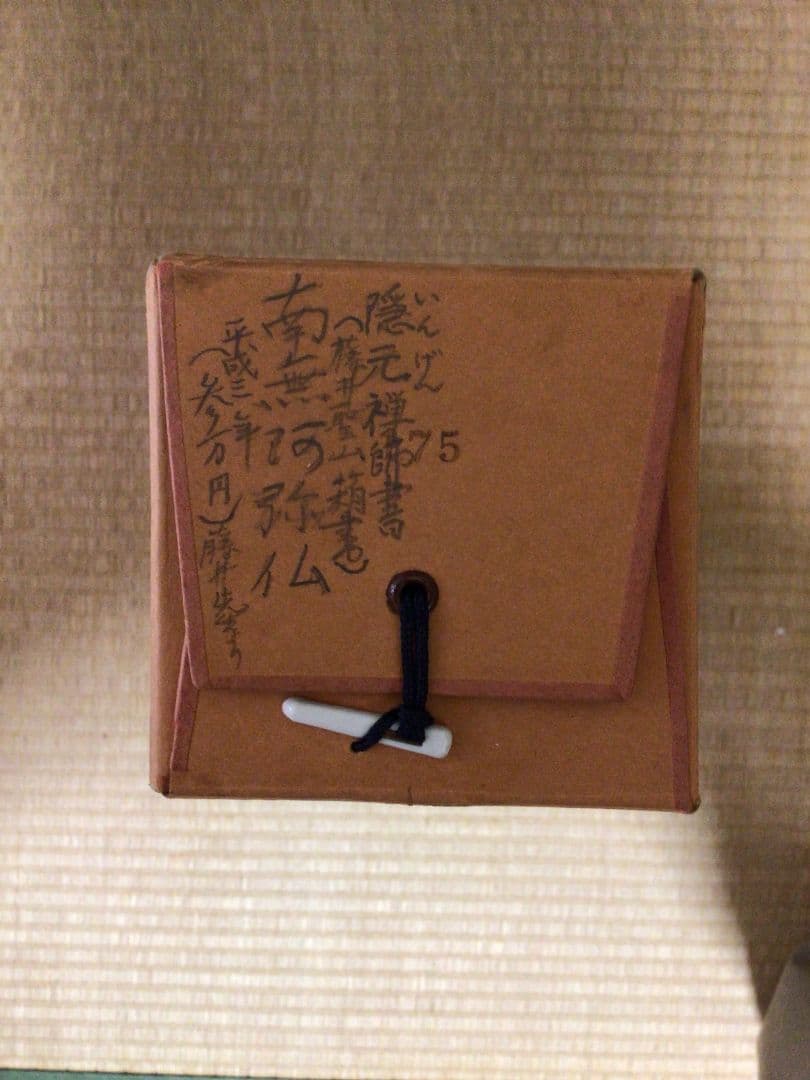 いんげん
隠元禅師書
75
(藤井聖山箱書)
南無阿弥仏
平成三年
(参万円)藤井先生より